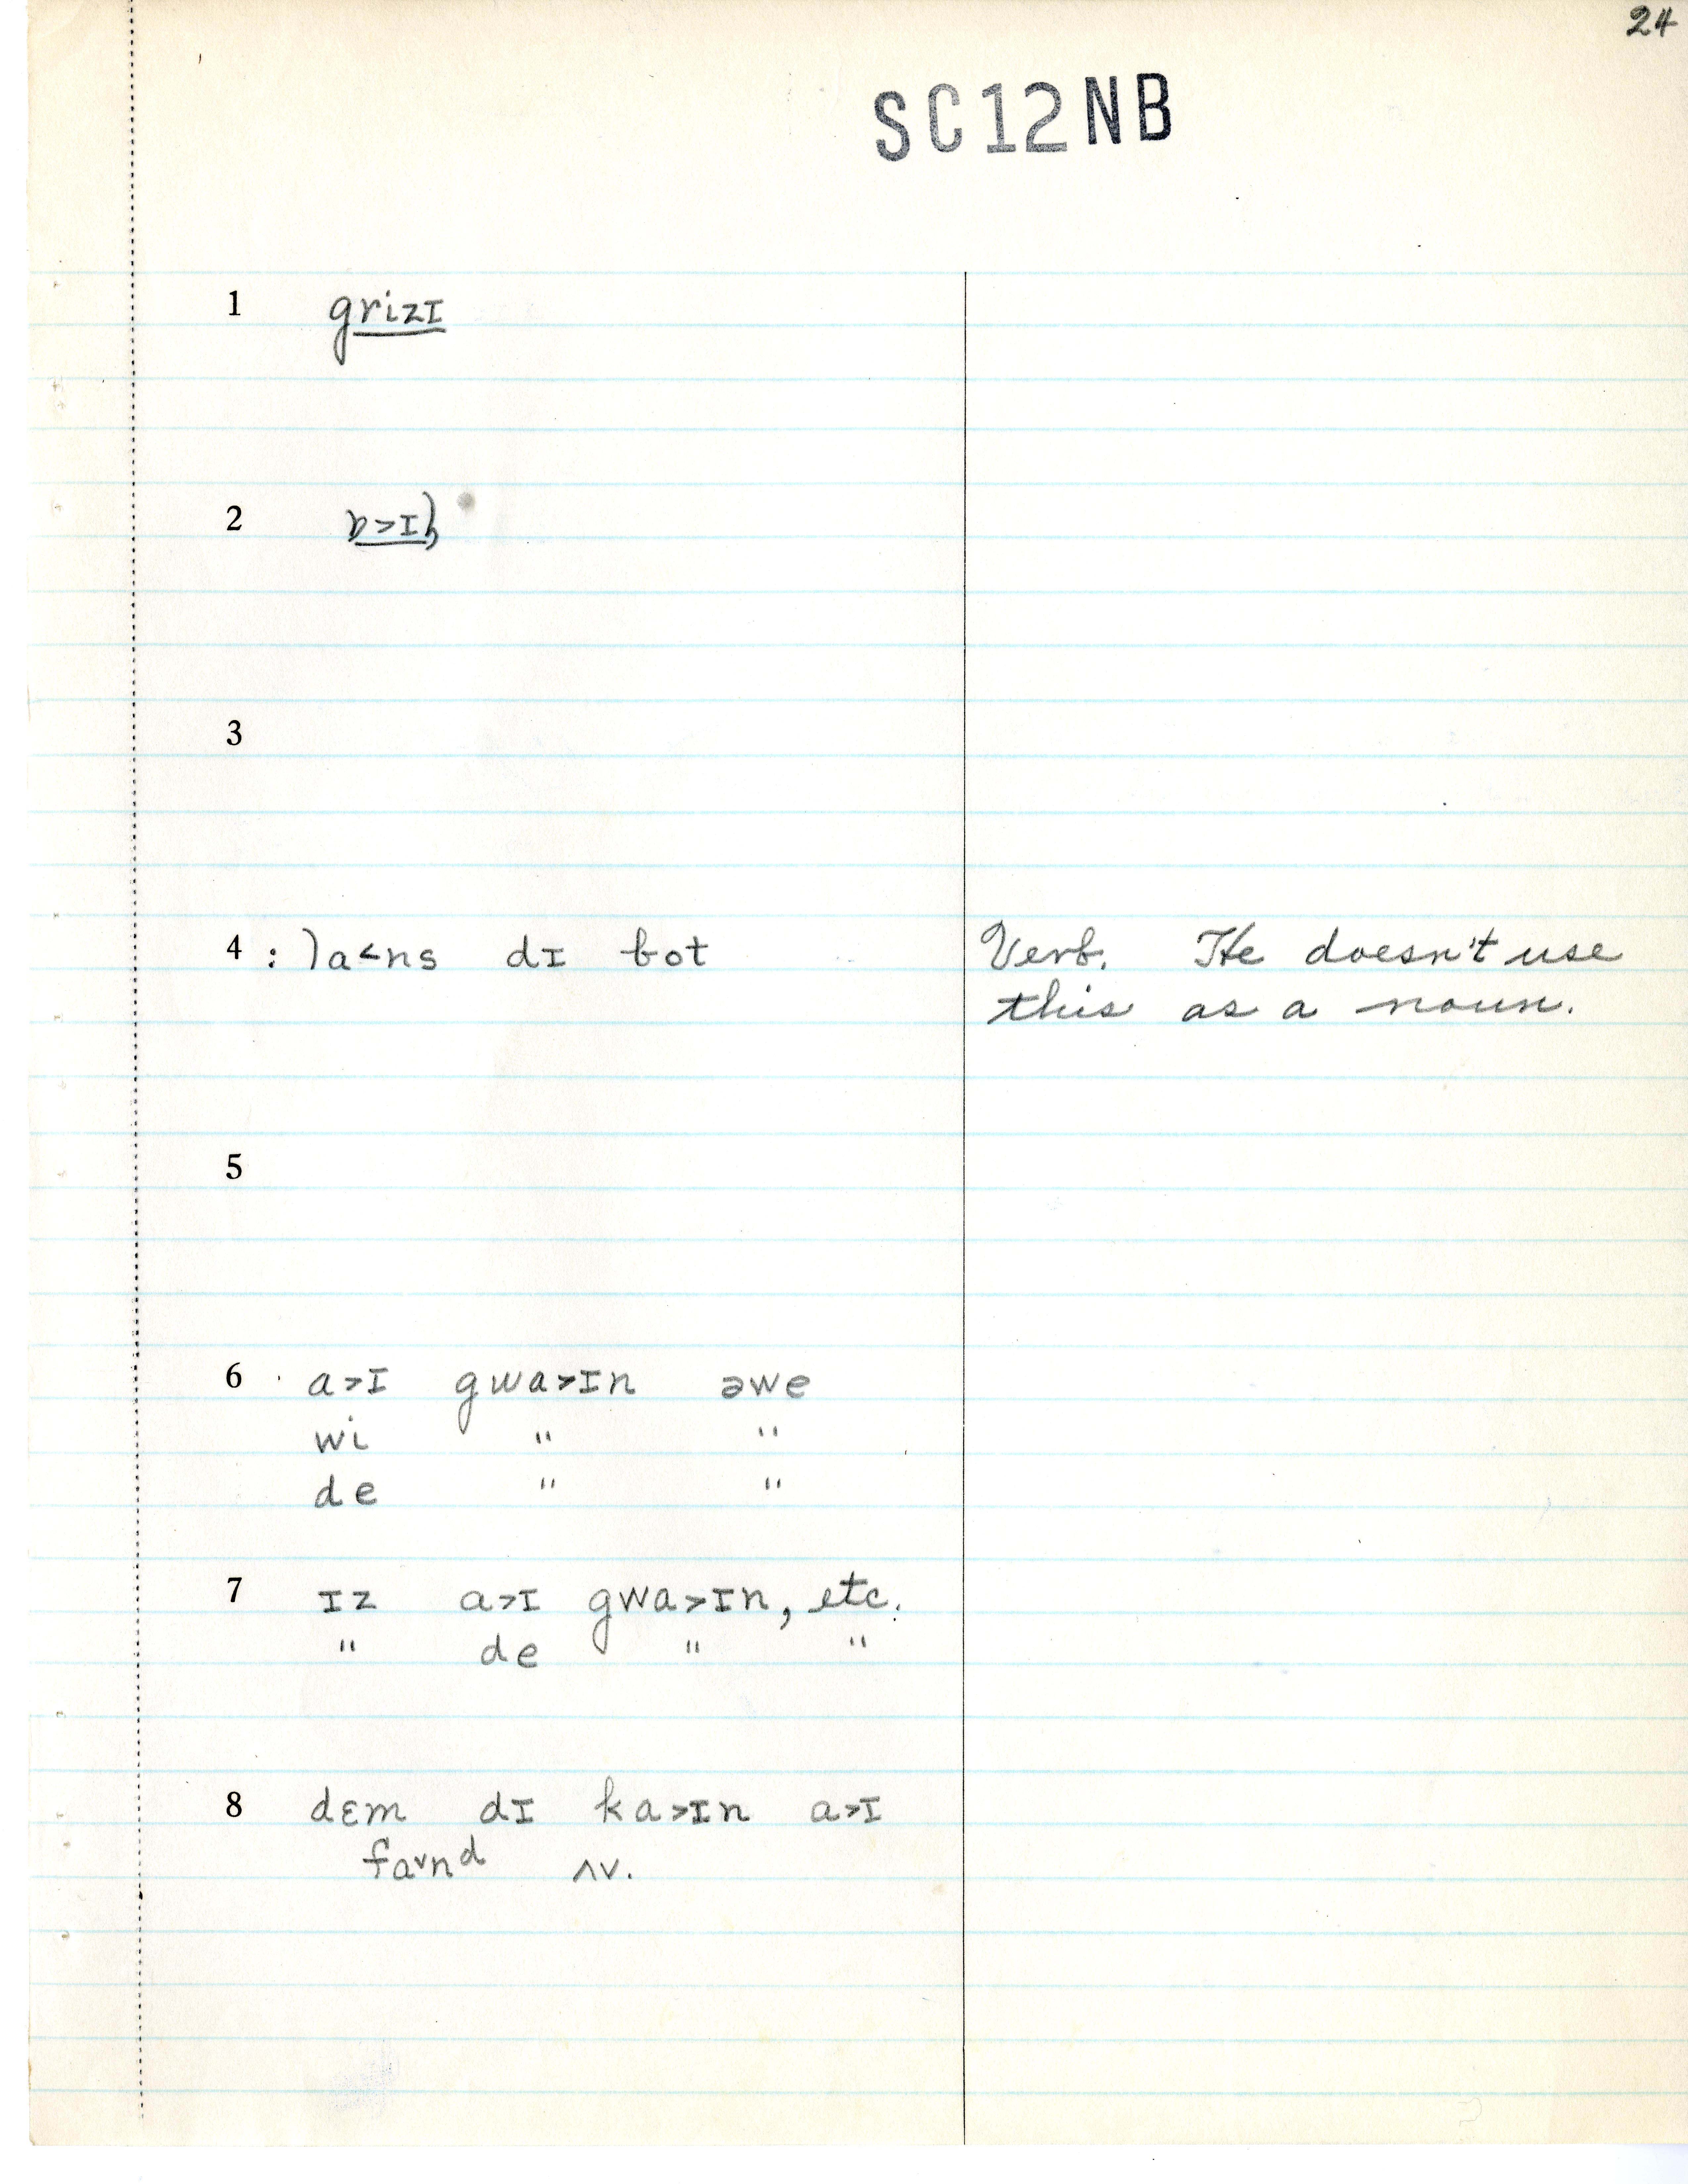 24
SC12NB
1 grizɪ
2 ɒ>ɪl
3
4 : la<ns dɪ bot Verb. He doesn't use
this as a noun.
5
6 a>ɪ gwa>ɪn əwe
wi " "
de " "
7 ɪz a>ɪ gwa>ɪn, etc.
" de " "
8 dɛm dɪ ka>ɪn a>ɪ
favnd ʌv.